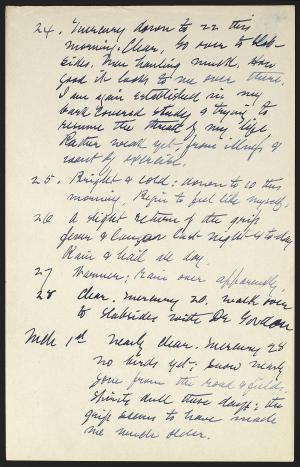 24. Mercury down to 22 this
morning. Clear, go over to Slab-
sides. Men hauling muck, how
good it looks to me over there.
I am again established in my
bark covered study & trying to
resume the thread of my life,
Rather weak yet, from illness &
want of exercise.
25. Bright & cold; down to 10 this
morning. Begin to feel like myself.
26 A slight return of the grip
fever & languor last night & to-day
Rain & hail all day.
27 Warmer; Rain over apparently,
28 Clear. Mercury 20. walk over
to Slabsides with Dr Gordon
Mch 1st Nearly clear. Mercury 28
no birds yet; snow nearly
gone from the road & fields,
Spirits dull these days; the
grip seems to have made
me much older.